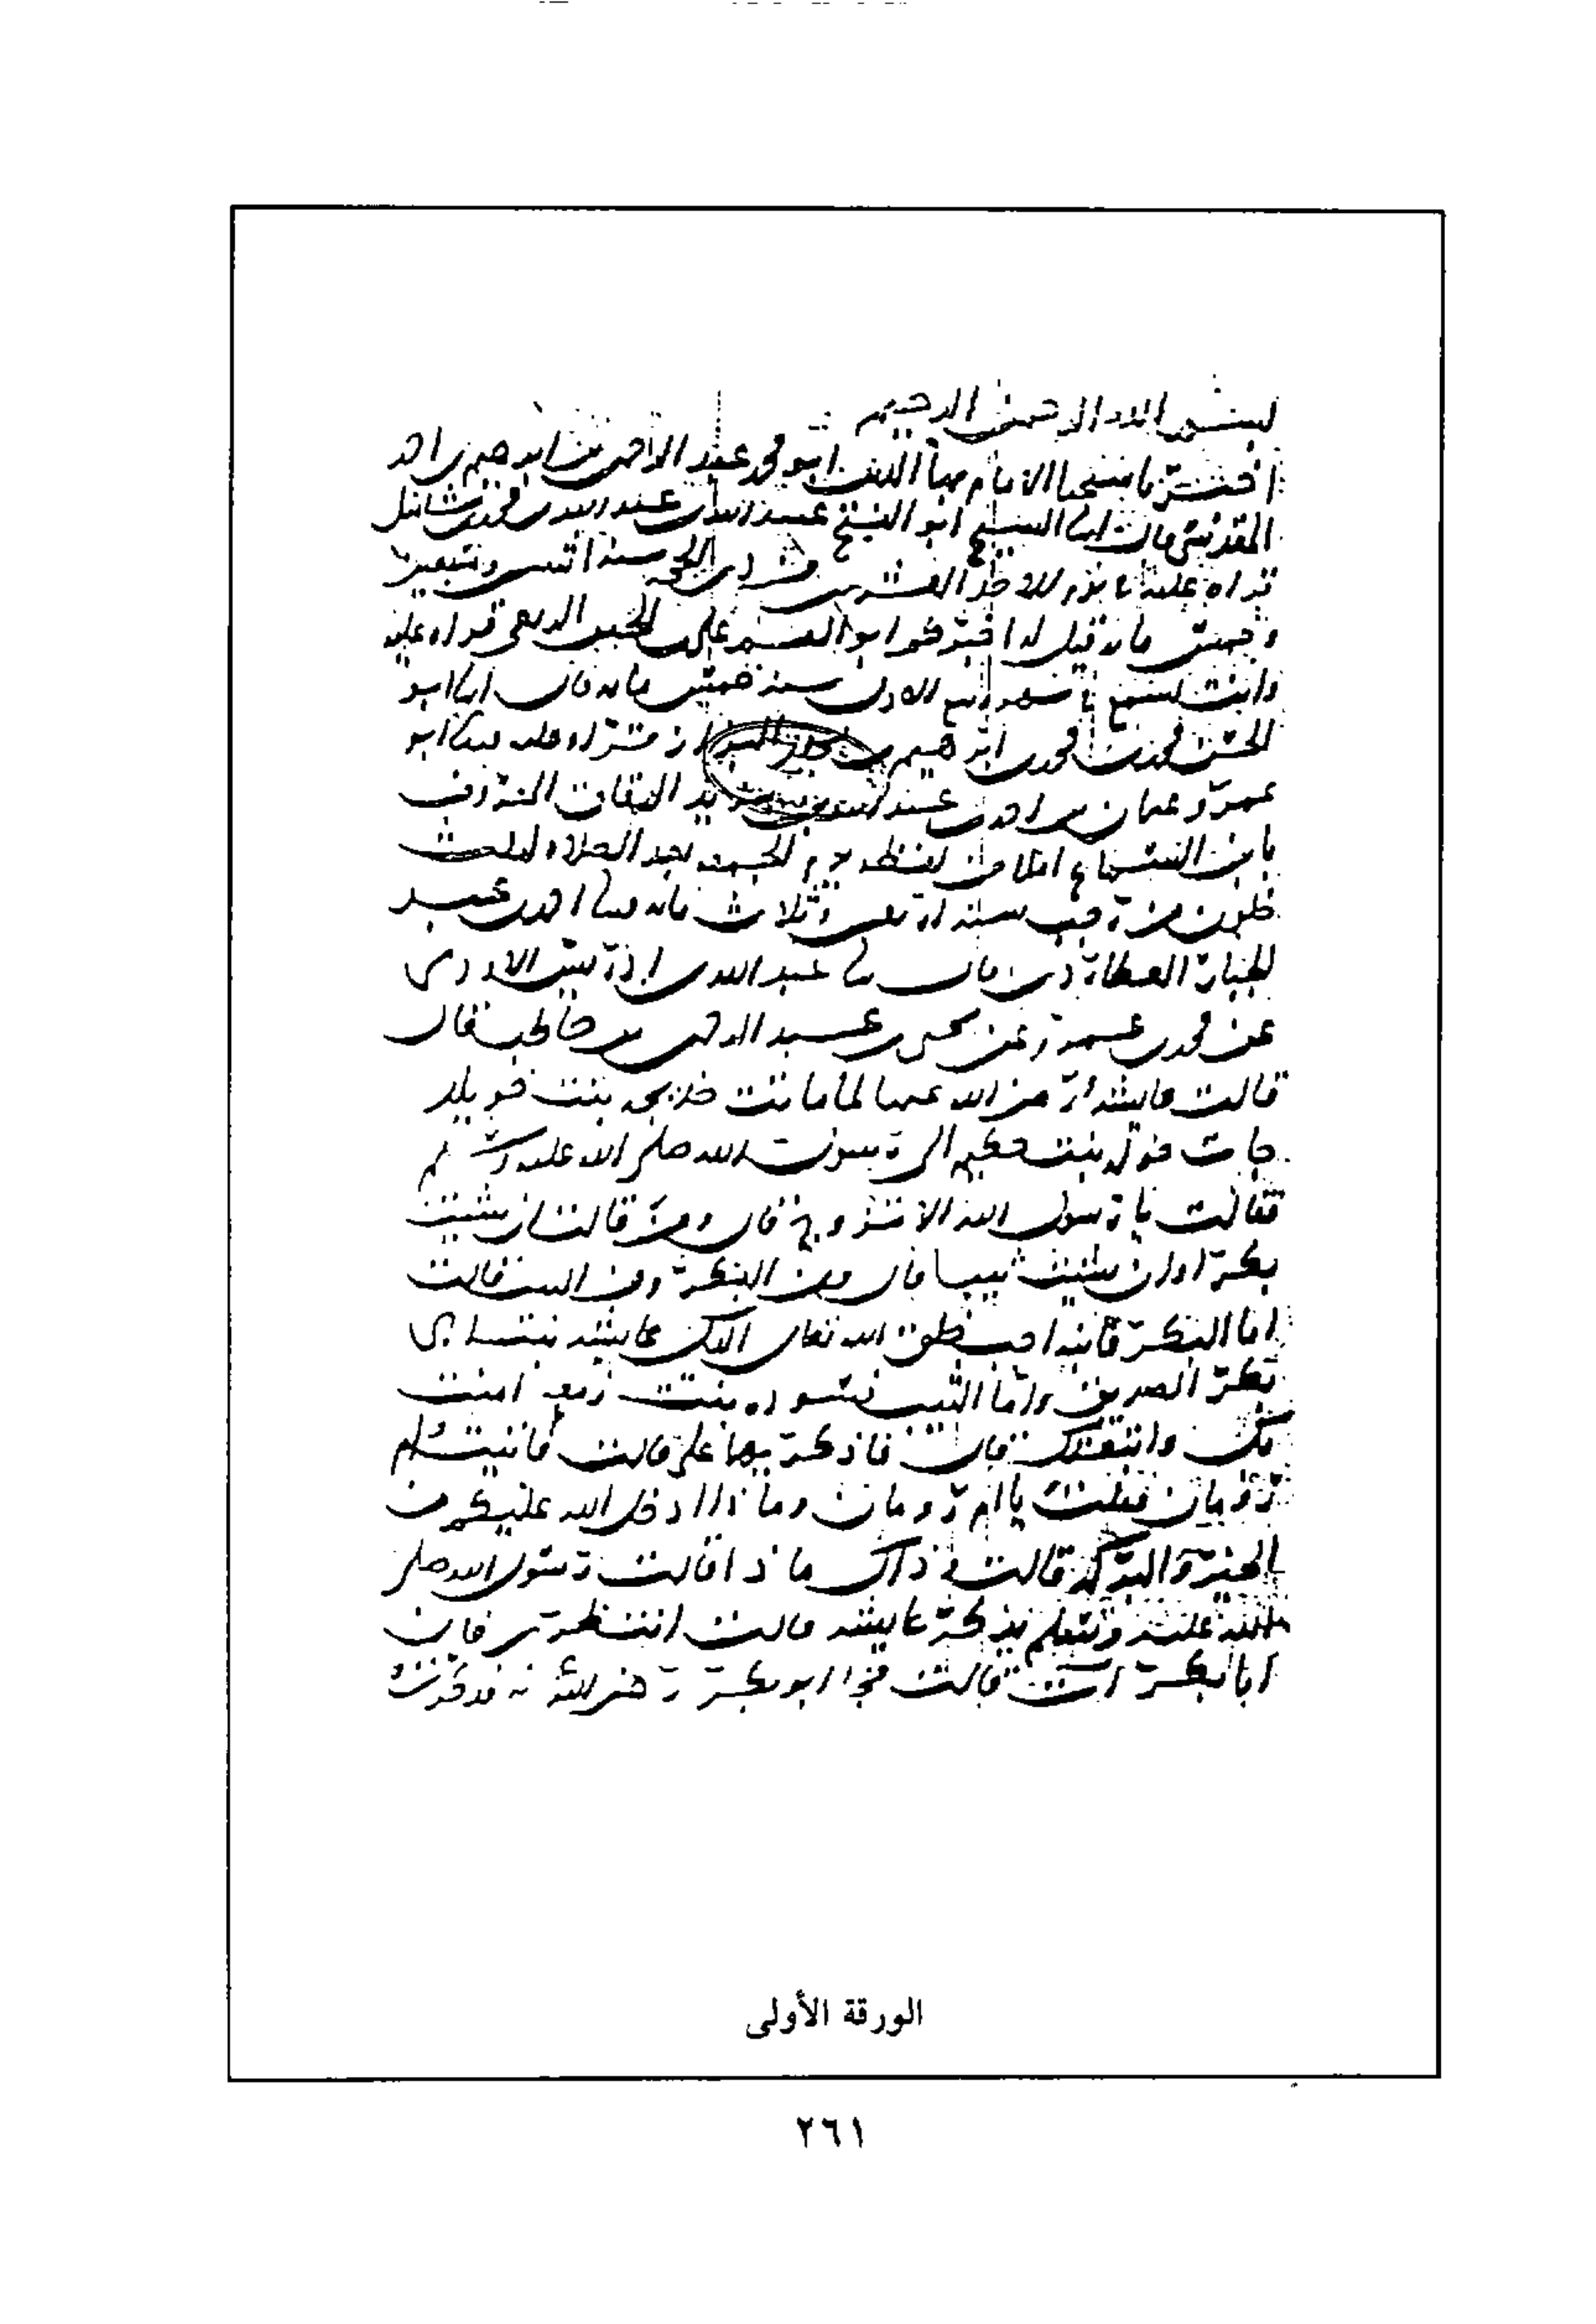 بسم الله الرحمن الرحيم
اخبرنا شيخنا الامام بها الدين ابو محمد عبد الرحمن بن ابرهيم بن احمد
المقدسي قال انا الشيخ ابو الفتح عبيد الله بن عبد الله بن محمد بن شاتيل
قراه عليه في يوم الاحد العشرين من ذي الحجه سنة اثنين وسبعين
وخمس مايه قيل له اخبركم ابو القسم علي بن الحسين الربعي قراه عليه
وانت تسمع في شهر ربيع الاول سنة خمس مايه قال انا ابو
الحسن محمد بن محمد بن ابرهيم بن مخلد البزاز قراه عليه ثنا ابو
عمرو عثمان بن احمد بن عبد الله بن يزيد الدقاق المعروف
بابن السماك املا من لفظه يوم الجمعه بعد الصلاه لثلاث
خلون من رجب سنه اربعين وثلاث مايه ثنا احمد بن عبد
الجبار العطاردي قال ثنا عبد الله بن ادريس الاودي
عن محمد بن عمرو عن يحيى بن عبد الرحمن بن حاطب قال
قالت عايشه رضي الله عنها لما ماتت خديجه بنت خويلد
جات خوله بنت حكيم الى رسول الله صلى الله عليه وسلم
فقالت يا رسول الله الا تزوج قال ومن قالت ان شيت
بكرا وان شيت ثيبا قال ومن البكر ومن الثيب قالت
اما البكر فابنه احب خلق الله تعالى اليك عايشه بنت ابي
بكر الصديق واما الثيب فسوده بنت زمعه امنت
بك واتبعتك قال فاذكريهما علي قالت فاتيت ام
رومان فقلت يا ام رومان وماذا ادخل الله عليكم من
الخير والبركه قالت وذاك ماذا قالت رسول الله صلى
الله عليه وسلم يذكر عايشه قالت انتظري فان
ابا بكر آت قالت فجا ابو بكر رضي الله عنه فذكرت
الورقة الأولى
٢٦١